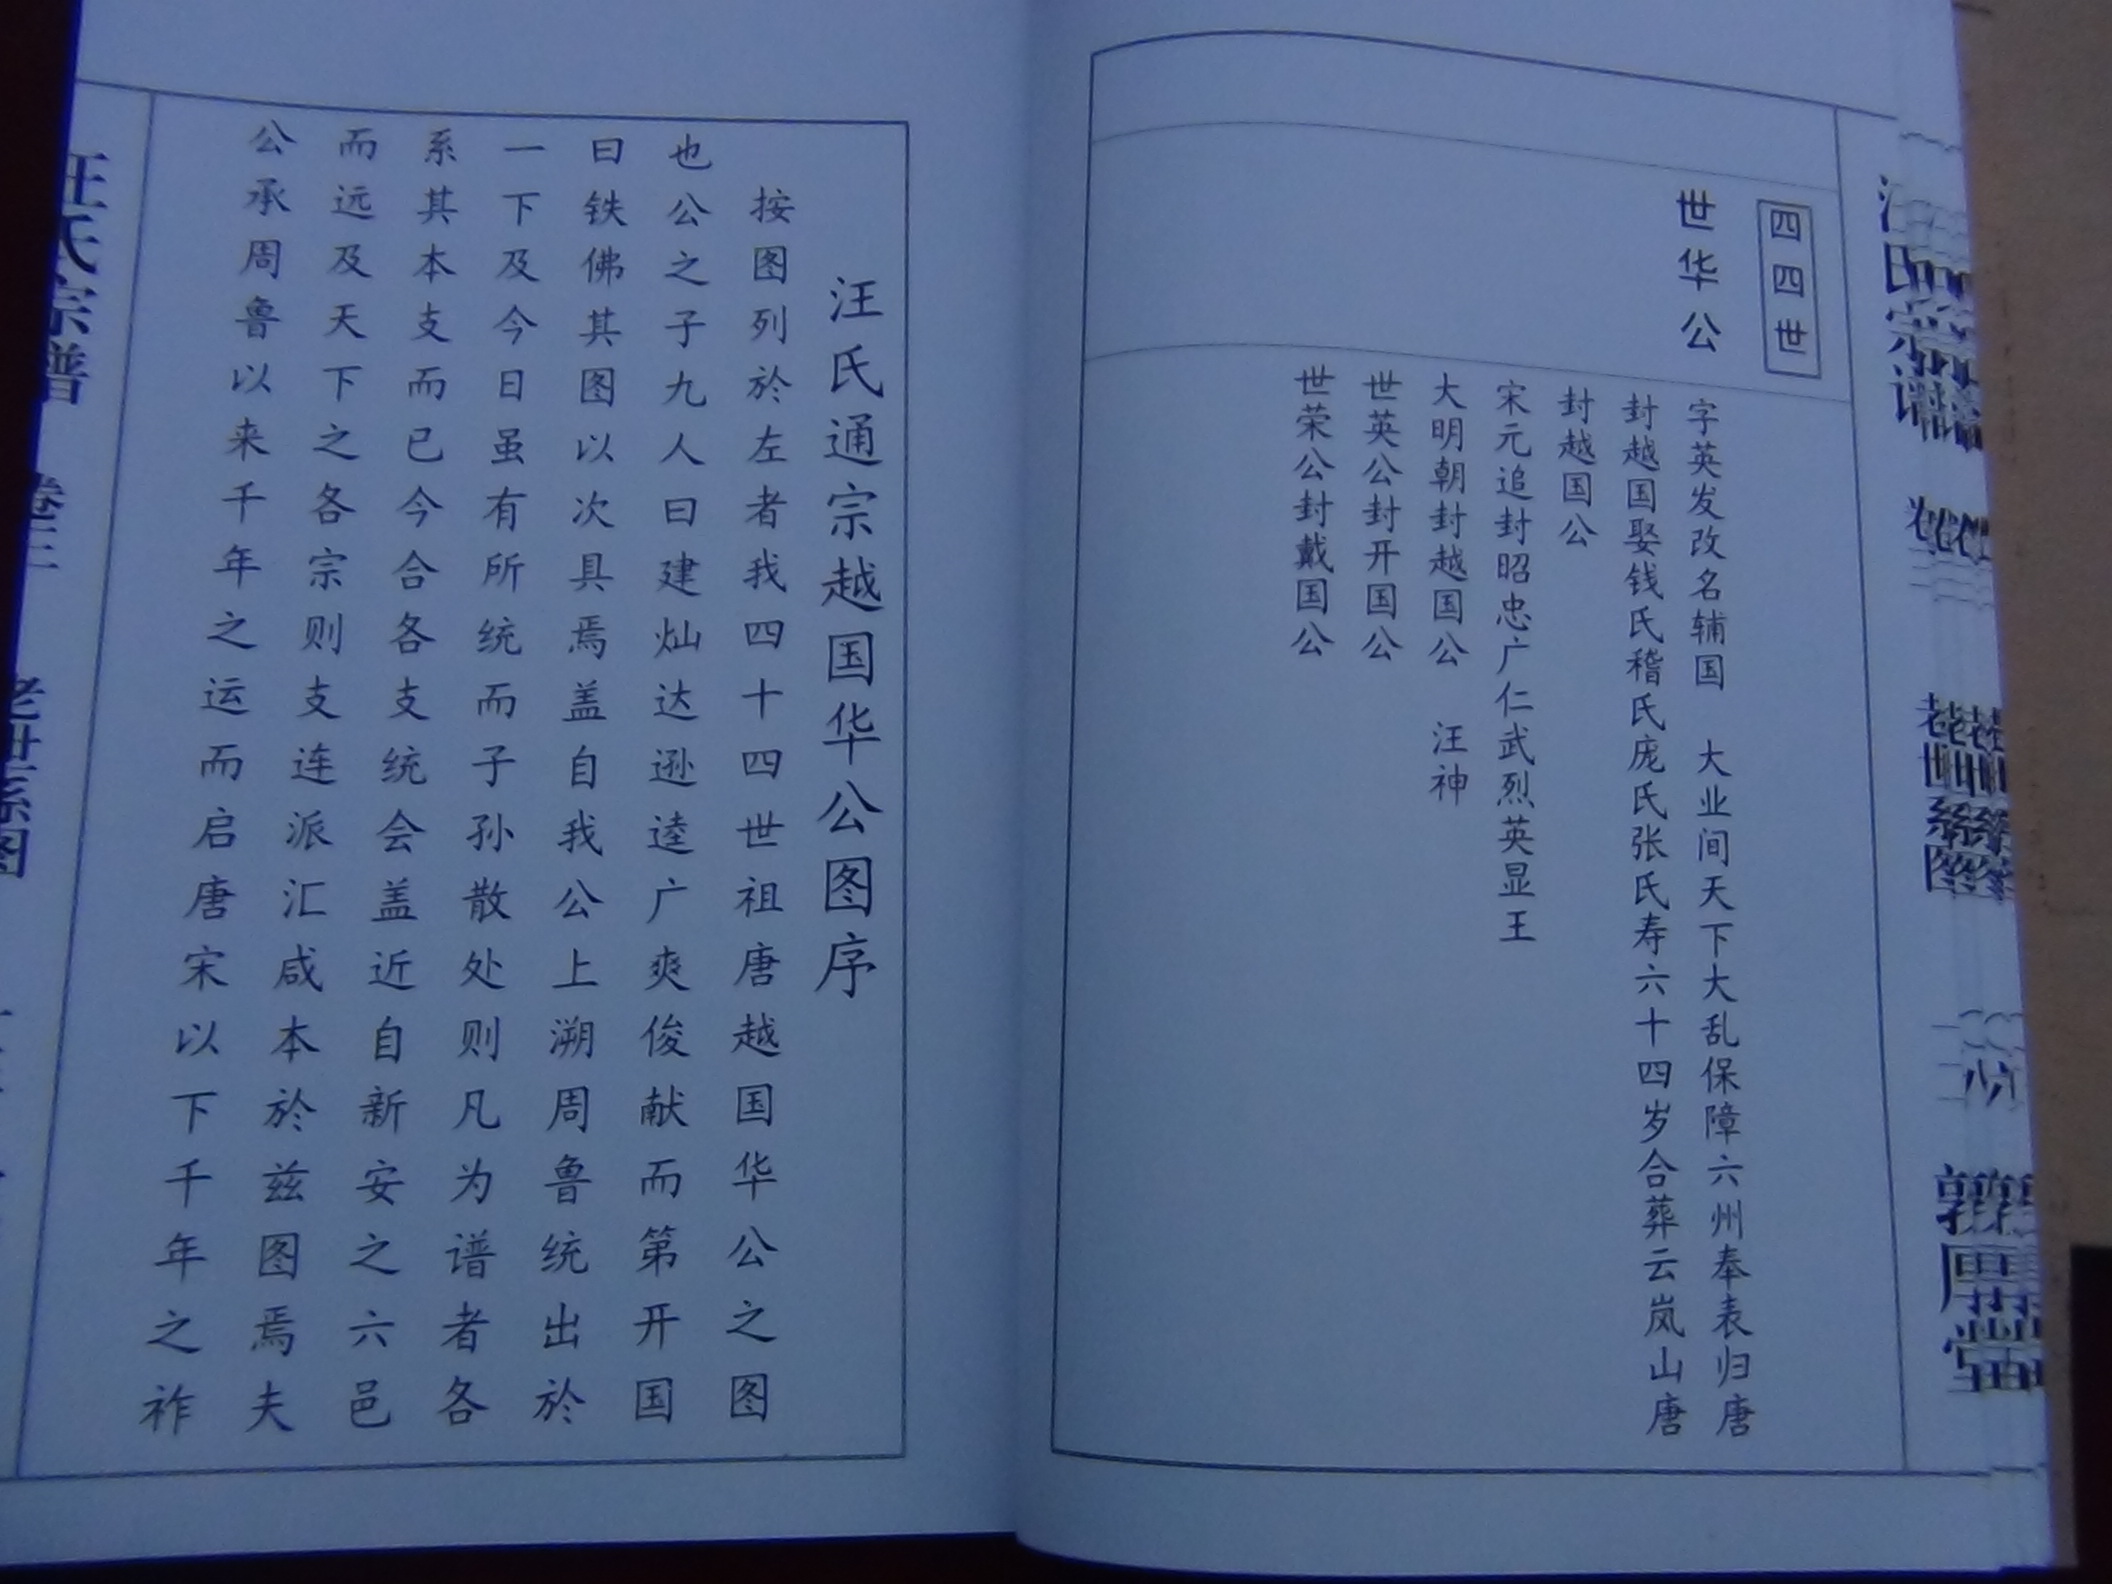 汪氏宗谱
四四世
世华公
字英发改名辅国 大业间天下大乱保障六州奉表归唐
封越国娶钱氏稽氏庞氏张氏寿六十四岁合葬云岚山唐
封越国公
宋元追封昭忠广仁武烈英显王
大明朝封越国公 汪神
世英公封开国公
世荣公封戴国公
汪氏通宗越国华公图序
按图列於左者我四十四世祖唐越国华公之图
也公之子九人曰建灿达逊逵广爽俊献而第开国
曰铁佛其图以次具焉盖自我公上溯周鲁统出於
一下及今日虽有所统而子孙散处则凡为谱者各
系其本支而已今合各支统会盖近自新安之六邑
而远及天下之各宗则支连派汇咸本於兹图焉夫
公承周鲁以来千年之运而启唐宋以下千年之祚
汪氏宗谱 卷三 老世系图